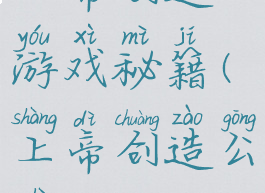 yóu xì mì jí
游戏秘籍(
shàng dì chuàng zào gōng
上帝创造公